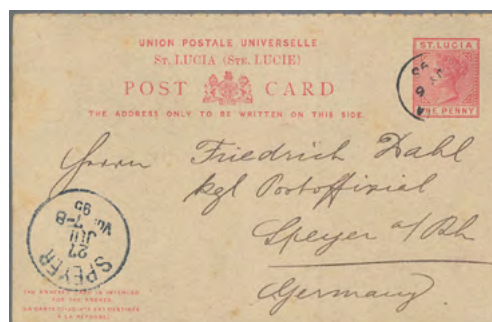 UNION POSTALE UNIVERSELLE
ST. LUCIA (STE. LUCIE)
POST CARD
THE ADDRESS ONLY TO BE WRITTEN ON THIS SIDE.
ST. LUCIA
ONE PENNY
Herrn Friedrich Dahl
kgl Postoffizial
Speyer a/Rh
Germany.
SPEYER
27
JUL
7-8
95
THE ANNEXED CARD IS INTENDED
FOR THE ANSWER.
LA CARTE CI-JOINTE EST DESTINÉE
À LA RÉPONSE.